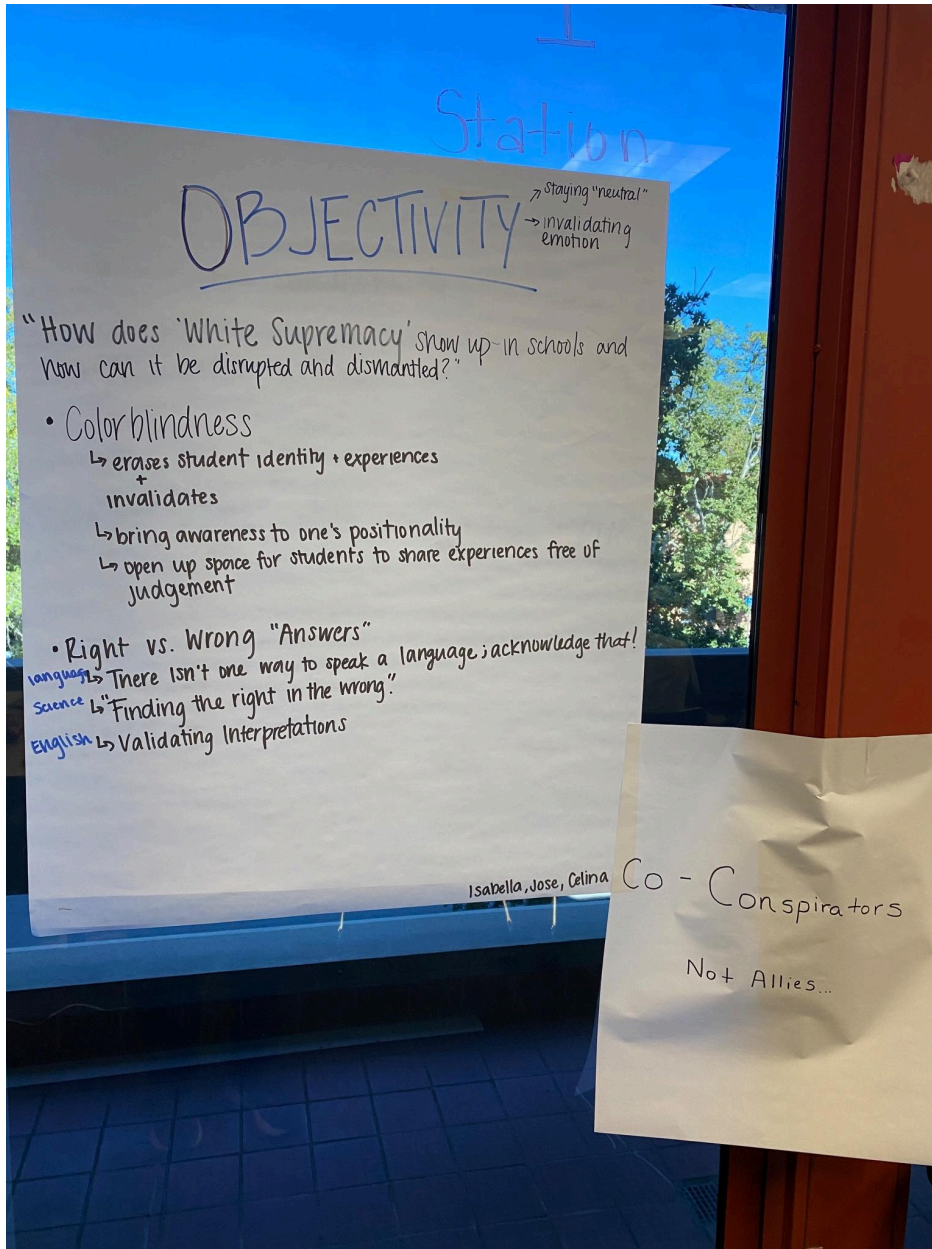 1
Station
OBJECTIVITY
↗ Staying "neutral"
→ invalidating
emotion
"How does 'White Supremacy' show up in schools and
how can it be disrupted and dismantled?"
• Colorblindness
↳ erases student identity + experiences
+
invalidates
↳ bring awareness to one's positionality
↳ open up space for students to share experiences free of
judgement
• Right vs. Wrong "Answers"
language ↳ There isn't one way to speak a language; acknowledge that!
Science ↳ "Finding the right in the wrong."
English ↳ Validating Interpretations
Isabella, Jose, Celina
Co - Conspirators
Not Allies...